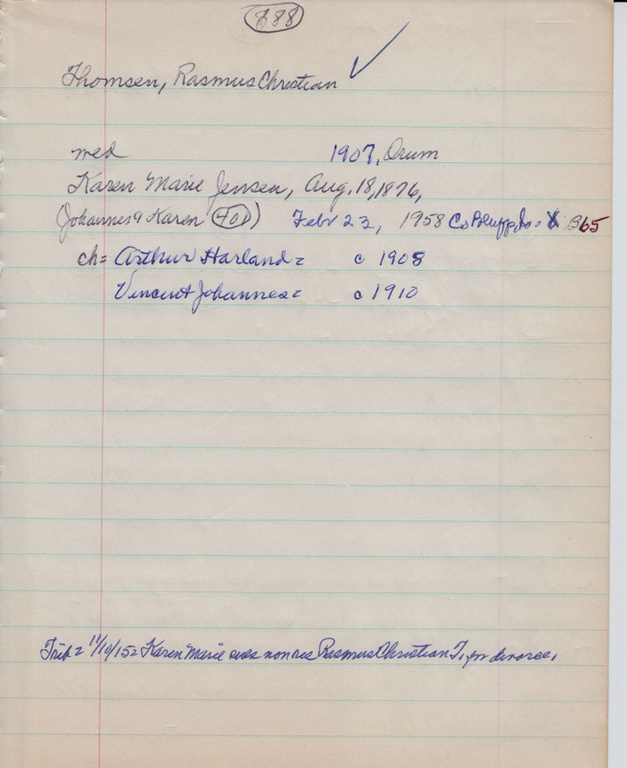 888
Thomsen, Rasmus Christian ✓
med 1907, Drum
Karen Marie Jensen, Aug. 18, 1876,
(Johannes & Karen (401)) Febr 23, 1958 Co Bluffs Ia = X B65
ch = Arthur Harland = c 1908
Vincent Johannes = c 1910
Trib = 11/10/15 = Karen Marie sues nonres Rasmus Christian T, for divorce,